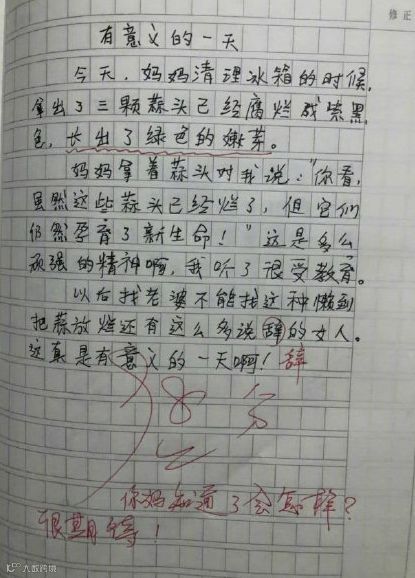 修正
有意义的一天
今天，妈妈清理冰箱的时候，
拿出了三颗蒜头已经腐烂成紫黑
色，长出了绿色的嫩芽。
妈妈拿着蒜头对我说："你看，
虽然这些蒜头已经烂了，但它们
仍然孕育了新生命！"这是多么
顽强的精神啊，我听了很受教育。
以后找老婆不能找这种懒到
把蒜放烂还有这么多说辞的女人。
这真是有意义的一天啊！辞
38分
你妈知道了会怎样？
很期待！
大数跨境